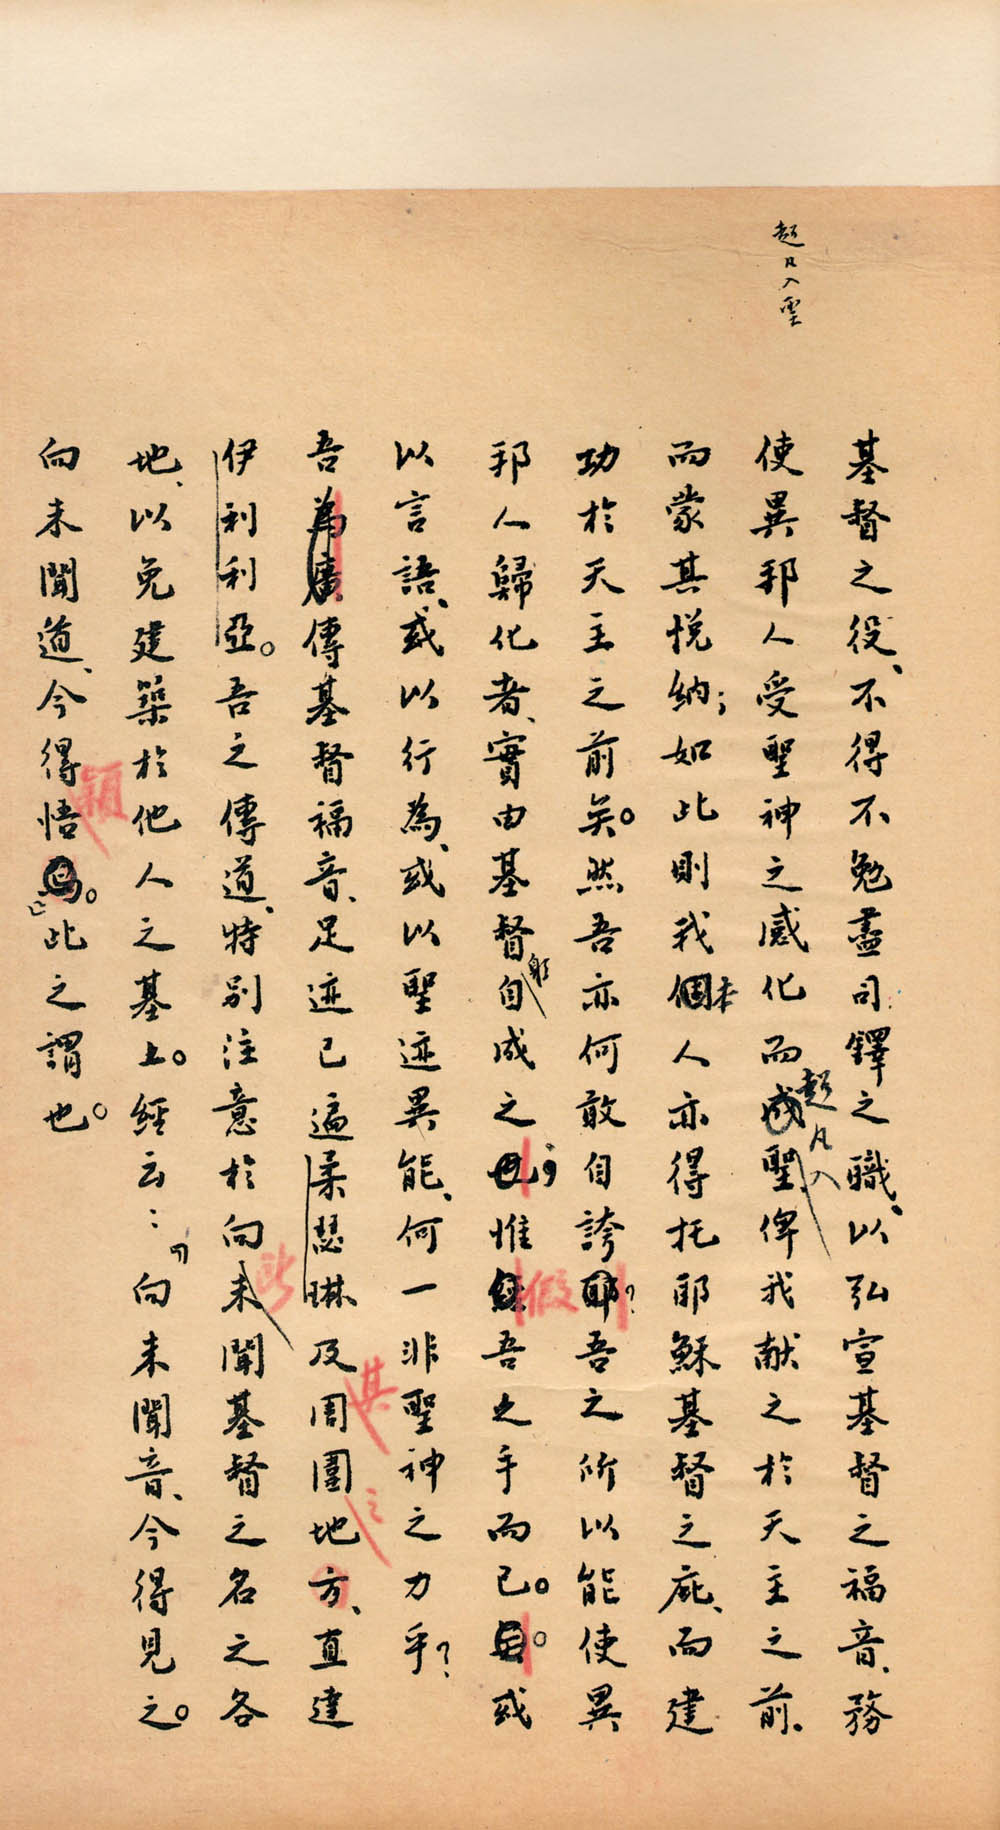 超凡入聖
基督之役、不得不勉盡司鐸之職、以弘宣基督之福音、務
使異邦人受聖神之感化而成超凡入聖、俾我献之於天主之前、
而蒙其悅納；如此則我個本人亦得托耶穌基督之庇、而建
功於天主之前矣。然吾亦何敢自誇耶？吾之所以能使異
邦人歸化者、實由基督自躬成之也；惟假吾之手而已。或
以言語、或以行為、或以聖迹異能、何一非聖神之力乎？
吾為廣傳基督福音、足迹已遍柔瑟琳及其周圍之地方、直達
伊利利亞。吾之傳道、特別注意於向未所聞基督之名之各
地、以免建築於他人之基上。經云：「向未聞音、今得見之。
向未聞道、今得穎悟焉。」此之謂也。